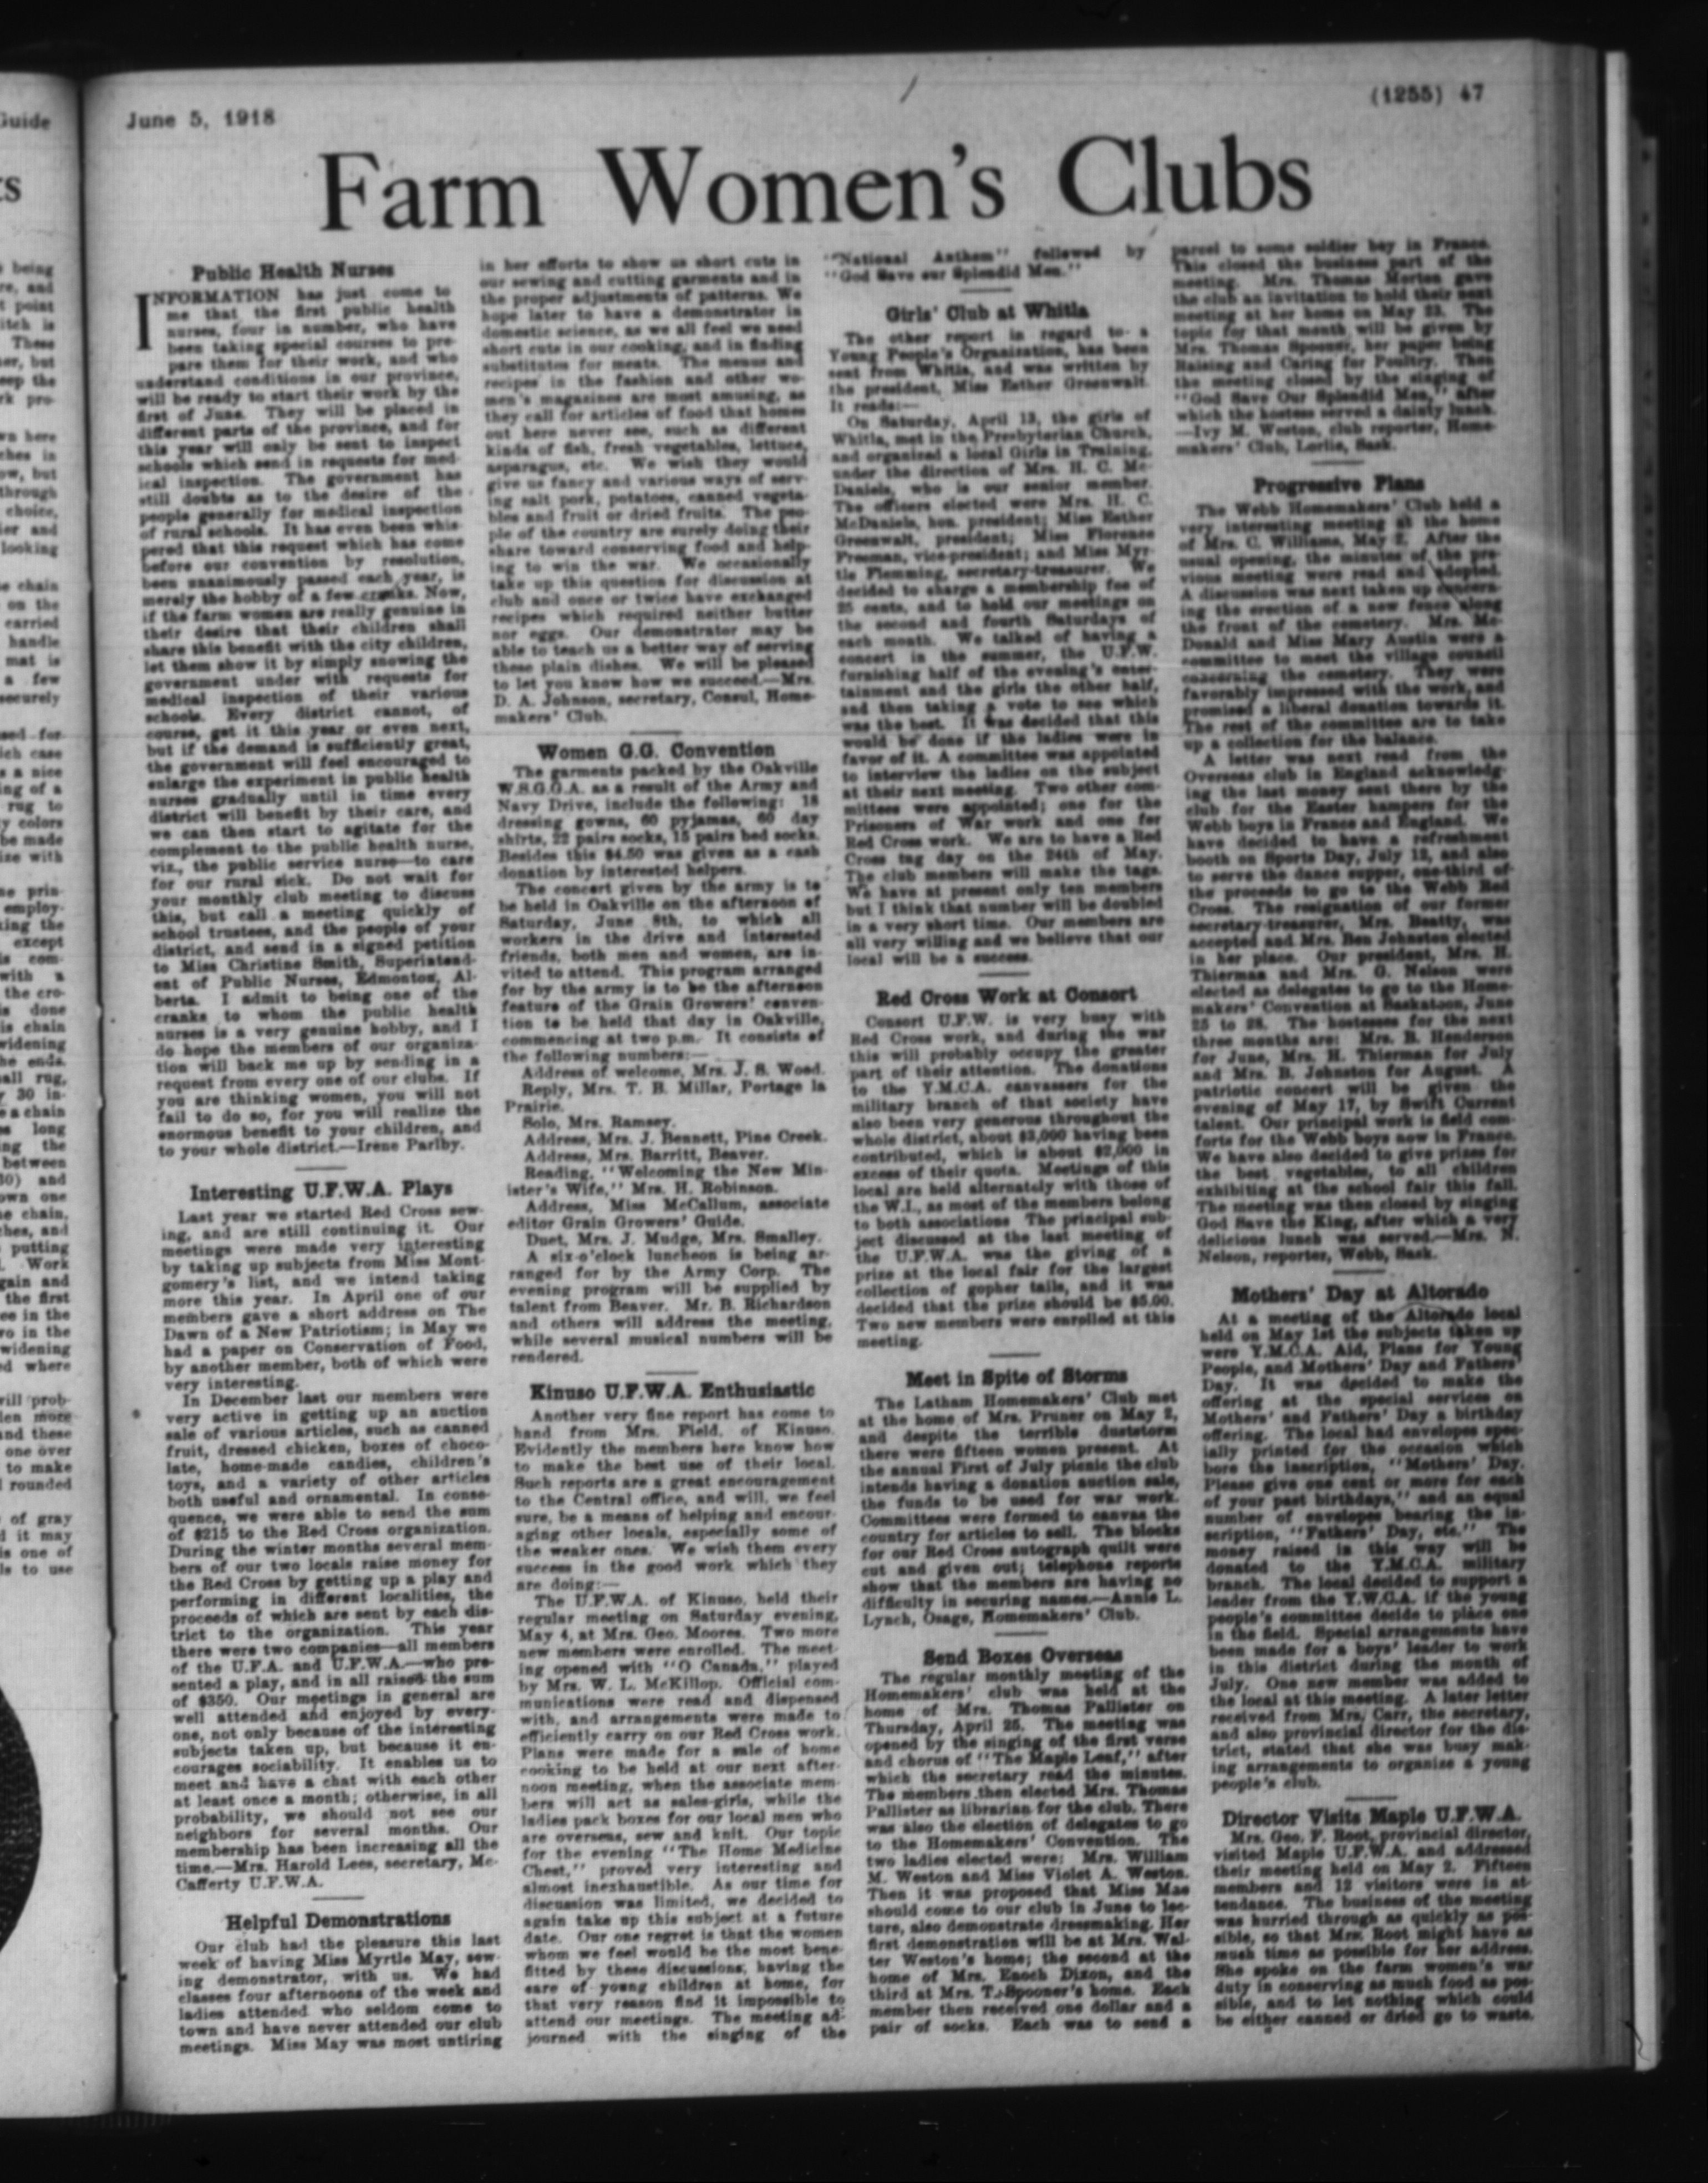 June 5, 1918
(1255) 47
Farm Women's Clubs
Public Health Nurses
INFORMATION has just come to
me that the first public health
nurses, four in number, who have
been taking special courses to pre-
pare them for their work, and who
understand conditions in our province,
will be ready to start their work by the
first of June. They will be placed in
different parts of the province, and for
this year will only be sent to inspect
schools which send in requests for med-
ical inspection. The government has
still doubts as to the desire of the
people generally for medical inspection
of rural schools. It has even been whis-
pered that this request which has come
before our convention by resolution,
been unanimously passed each year, is
merely the hobby of a few cranks. Now,
if the farm women are really genuine in
their desire that their children shall
share this benefit with the city children,
let them show it by simply snowing the
government under with requests for
medical inspection of their various
schools. Every district cannot, of
course, get it this year or even next,
but if the demand is sufficiently great,
the government will feel encouraged to
enlarge the experiment in public health
nurses gradually until in time every
district will benefit by their care, and
we can then start to agitate for the
complement to the public health nurse,
viz., the public service nurse—to care
for our rural sick. Do not wait for
your monthly club meeting to discuss
this, but call a meeting quickly of
school trustees, and the people of your
district, and send in a signed petition
to Miss Christine Smith, Superintend-
ent of Public Nurses, Edmonton, Al-
berta. I admit to being one of the
cranks to whom the public health
nurses is a very genuine hobby, and I
do hope the members of our organiza-
tion will back me up by sending in a
request from every one of our clubs. If
you are thinking women, you will not
fail to do so, for you will realize the
enormous benefit to your children, and
to your whole district.—Irene Parlby.
Interesting U.F.W.A. Plays
Last year we started Red Cross sew-
ing, and are still continuing it. Our
meetings were made very interesting
by taking up subjects from Miss Mont-
gomery's list, and we intend taking
more this year. In April one of our
members gave a short address on The
Dawn of a New Patriotism; in May we
had a paper on Conservation of Food,
by another member, both of which were
very interesting.
In December last our members were
very active in getting up an auction
sale of various articles, such as canned
fruit, dressed chicken, boxes of choco-
late, home-made candies, children's
toys, and a variety of other articles
both useful and ornamental. In conse-
quence, we were able to send the sum
of $215 to the Red Cross organization.
During the winter months several mem-
bers of our two locals raise money for
the Red Cross by getting up a play and
performing in different localities, the
proceeds of which are sent by each dis-
trict to the organization. This year
there were two companies—all members
of the U.F.A. and U.F.W.A.—who pre-
sented a play, and in all raised the sum
of $350. Our meetings in general are
well attended and enjoyed by every-
one, not only because of the interesting
subjects taken up, but because it en-
courages sociability. It enables us to
meet and have a chat with each other
at least once a month; otherwise, in all
probability, we should not see our
neighbors for several months. Our
membership has been increasing all the
time.—Mrs. Harold Lees, secretary, Mc-
Cafferty U.F.W.A.
Helpful Demonstrations
Our club had the pleasure this last
week of having Miss Myrtle May, sew-
ing demonstrator, with us. We had
classes four afternoons of the week and
ladies attended who seldom come to
town and have never attended our club
meetings. Miss May was most untiring
in her efforts to show us short cuts in
our sewing and cutting garments and in
the proper adjustments of patterns. We
hope later to have a demonstrator in
domestic science, as we all feel we need
short cuts in our cooking, and in finding
substitutes for meats. The menus and
recipes in the fashion and other wo-
men's magazines are most amusing, as
they call for articles of food that homes
out here never see, such as different
kinds of fish, fresh vegetables, lettuce,
asparagus, etc. We wish they would
give us fancy and various ways of serv-
ing salt pork, potatoes, canned vegeta-
bles and fruit or dried fruits. The peo-
ple of the country are surely doing their
share toward conserving food and help-
ing to win the war. We occasionally
take up this question for discussion at
club and once or twice have exchanged
recipes which required neither butter
nor eggs. Our demonstrator may be
able to teach us a better way of serving
these plain dishes. We will be pleased
to let you know how we succeed.—Mrs.
D. A. Johnson, secretary, Consul, Home-
makers' Club.
Women G.G. Convention
The garments packed by the Oakville
W.S.G.G.A. as a result of the Army and
Navy Drive, include the following: 18
dressing gowns, 60 pyjamas, 60 day
shirts, 22 pairs socks, 15 pairs bed socks.
Besides this $4.50 was given as a cash
donation by interested helpers.
The concert given by the army is to
be held in Oakville on the afternoon of
Saturday, June 8th, to which all
workers in the drive and interested
friends, both men and women, are in-
vited to attend. This program arranged
for by the army is to be the afternoon
feature of the Grain Growers' conven-
tion to be held that day in Oakville,
commencing at two p.m. It consists of
the following numbers:—
Address of welcome, Mrs. J. S. Wood.
Reply, Mrs. T. B. Millar, Portage la
Prairie.
Solo, Mrs. Ramsey.
Address, Mrs. J. Bennett, Pine Creek.
Address, Mrs. Barritt, Beaver.
Reading, "Welcoming the New Min-
ister's Wife," Mrs. H. Robinson.
Address, Miss McCallum, associate
editor Grain Growers' Guide.
Duet, Mrs. J. Mudge, Mrs. Smalley.
A six-o'clock luncheon is being ar-
ranged for by the Army Corp. The
evening program will be supplied by
talent from Beaver. Mr. B. Richardson
and others will address the meeting,
while several musical numbers will be
rendered.
Kinuso U.F.W.A. Enthusiastic
Another very fine report has come to
hand from Mrs. Field, of Kinuso.
Evidently the members here know how
to make the best use of their local.
Such reports are a great encouragement
to the Central office, and will, we feel
sure, be a means of helping and encour-
aging other locals, especially some of
the weaker ones. We wish them every
success in the good work which they
are doing:—
The U.F.W.A. of Kinuso, held their
regular meeting on Saturday evening,
May 4, at Mrs. Geo. Moores. Two more
new members were enrolled. The meet-
ing opened with "O Canada," played
by Mrs. W. L. McKillop. Official com-
munications were read and dispensed
with, and arrangements were made to
efficiently carry on our Red Cross work.
Plans were made for a sale of home
cooking to be held at our next after-
noon meeting, when the associate mem-
bers will act as sales-girls, while the
ladies pack boxes for our local men who
are overseas, sew and knit. Our topic
for the evening "The Home Medicine
Chest," proved very interesting and
almost inexhaustible. As our time for
discussion was limited, we decided to
again take up this subject at a future
date. Our one regret is that the women
whom we feel would be the most bene-
fitted by these discussions, having the
care of young children at home, for
that very reason find it impossible to
attend our meetings. The meeting ad-
journed with the singing of the
"National Anthem" followed by
"God Save our Splendid Men."
Girls' Club at Whitla
The other report in regard to a
Young People's Organization, has been
sent from Whitla, and was written by
the president, Miss Esther Greenwalt.
It reads:—
On Saturday, April 13, the girls of
Whitla, met in the Presbyterian Church,
and organized a local Girls in Training,
under the direction of Mrs. H. C. Mc-
Daniels, who is our senior member.
The officers elected were Mrs. H. C.
McDaniels, hon. president; Miss Esther
Greenwalt, president; Miss Florence
Freeman, vice-president; and Miss Myr-
tle Flemming, secretary-treasurer. We
decided to charge a membership fee of
25 cents, and to hold our meetings on
the second and fourth Saturdays of
each month. We talked of having a
concert in the summer, the U.F.W.
furnishing half of the evening's enter-
tainment and the girls the other half,
and then taking a vote to see which
was the best. It was decided that this
would be done if the ladies were in
favor of it. A committee was appointed
to interview the ladies on the subject
at their next meeting. Two other com-
mittees were appointed; one for the
Prisoners of War work and one for
Red Cross work. We are to have a Red
Cross tag day on the 24th of May.
The club members will make the tags.
We have at present only ten members
but I think that number will be doubled
in a very short time. Our members are
all very willing and we believe that our
local will be a success.
Red Cross Work at Consort
Consort U.F.W. is very busy with
Red Cross work, and during the war
this will probably occupy the greater
part of their attention. The donations
to the Y.M.C.A. canvassers for the
military branch of that society have
also been very generous throughout the
whole district, about $3,000 having been
contributed, which is about $2,000 in
excess of their quota. Meetings of this
local are held alternately with those of
the W.I., as most of the members belong
to both associations The principal sub-
ject discussed at the last meeting of
the U.F.W.A. was the giving of a
prize at the local fair for the largest
collection of gopher tails, and it was
decided that the prize should be $5.00.
Two new members were enrolled at this
meeting.
Meet in Spite of Storms
The Latham Homemakers' Club met
at the home of Mrs. Pruner on May 2,
and despite the terrible duststorm
there were fifteen women present. At
the annual First of July picnic the club
intends having a donation auction sale,
the funds to be used for war work.
Committees were formed to canvas the
country for articles to sell. The blocks
for our Red Cross autograph quilt were
cut and given out; telephone reports
show that the members are having no
difficulty in securing names.—Annie L.
Lynch, Osage, Homemakers' Club.
Send Boxes Overseas
The regular monthly meeting of the
Homemakers' club was held at the
home of Mrs. Thomas Pallister on
Thursday, April 25. The meeting was
opened by the singing of the first verse
and chorus of "The Maple Leaf," after
which the secretary read the minutes.
The members then elected Mrs. Thomas
Pallister as librarian for the club. There
was also the election of delegates to go
to the Homemakers' Convention. The
two ladies elected were; Mrs. William
M. Weston and Miss Violet A. Weston.
Then it was proposed that Miss Mae
should come to our club in June to lec-
ture, also demonstrate dressmaking. Her
first demonstration will be at Mrs. Wal-
ter Weston's home; the second at the
home of Mrs. Enoch Dixon, and the
third at Mrs. T. Spooner's home. Each
member then received one dollar and a
pair of socks. Each was to send a
parcel to some soldier boy in France.
This closed the business part of the
meeting. Mrs. Thomas Morton gave
the club an invitation to hold their next
meeting at her home on May 23. The
topic for that month will be given by
Mrs. Thomas Spooner, her paper being
Raising and Caring for Poultry. Then
the meeting closed by the singing of
"God Save Our Splendid Men," after
which the hostess served a dainty lunch.
—Ivy M. Weston, club reporter, Home-
makers' Club, Lorlie, Sask.
Progressive Plans
The Webb Homemakers' Club held a
very interesting meeting at the home
of Mrs. C. Williams, May 2. After the
usual opening, the minutes of the pre-
vious meeting were read and adopted.
A discussion was next taken up concern-
ing the erection of a new fence along
the front of the cemetery. Mrs. Mc-
Donald and Miss Mary Austin were a
committee to meet the village council
concerning the cemetery. They were
favorably impressed with the work, and
promised a liberal donation towards it.
The rest of the committee are to take
up a collection for the balance.
A letter was next read from the
Overseas club in England acknowledg-
ing the last money sent there by the
club for the Easter hampers for the
Webb boys in France and England. We
have decided to have a refreshment
booth on Sports Day, July 12, and also
to serve the dance supper, one-third of
the proceeds to go to the Webb Red
Cross. The resignation of our former
secretary-treasurer, Mrs. Beatty, was
accepted and Mrs. Ben Johnston elected
in her place. Our president, Mrs. H.
Thierman and Mrs. G. Nelson were
elected as delegates to go to the Home-
makers' Convention at Saskatoon, June
25 to 28. The hostesses for the next
three months are: Mrs. B. Henderson
for June, Mrs. H. Thierman for July
and Mrs. B. Johnston for August. A
patriotic concert will be given the
evening of May 17, by Swift Current
talent. Our principal work is field com-
forts for the Webb boys now in France.
We have also decided to give prizes for
the best vegetables, to all children
exhibiting at the school fair this fall.
The meeting was then closed by singing
God Save the King, after which a very
delicious lunch was served.—Mrs. N.
Nelson, reporter, Webb, Sask.
Mothers' Day at Altorado
At a meeting of the Altorado local
held on May 1st the subjects taken up
were Y.M.C.A. Aid, Plans for Young
People, and Mothers' Day and Fathers'
Day. It was decided to make the
offering at the special services on
Mothers' and Fathers' Day a birthday
offering. The local had envelopes spec-
ially printed for the occasion which
bore the inscription, "Mothers' Day.
Please give one cent or more for each
of your past birthdays," and an equal
number of envelopes bearing the in-
scription, "Fathers' Day, etc." The
money raised in this way will be
donated to the Y.M.C.A. military
branch. The local decided to support a
leader from the Y.W.C.A. if the young
people's committee decide to place one
in the field. Special arrangements have
been made for a boys' leader to work
in this district during the month of
July. One new member was added to
the local at this meeting. A later letter
received from Mrs. Carr, the secretary,
and also provincial director for the dis-
trict, stated that she was busy mak-
ing arrangements to organize a young
people's club.
Director Visits Maple U.F.W.A.
Mrs. Geo. F. Root, provincial director,
visited Maple U.F.W.A. and addressed
their meeting held on May 2. Fifteen
members and 12 visitors were in at-
tendance. The business of the meeting
was hurried through as quickly as pos-
sible, so that Mrs. Root might have as
much time as possible for her address.
She spoke on the farm women's war
duty in conserving as much food as pos-
sible, and to let nothing which could
be either canned or dried go to waste.